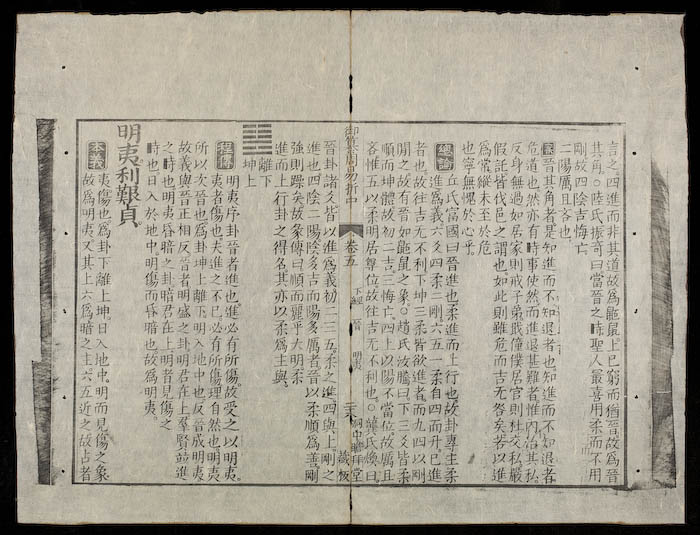 言之四進而非其道故為鼫鼠上已窮而猶晉故為晉
其角○陸氏振奇曰當晉之時聖人最喜用柔而不用
剛故四陰吉悔亡
二陽厲且吝也
案晉其角者是知進而不知退者也知進而不知退者
危道也然亦有時事使然而進退甚難者惟內治其私
反身無過如居家則戒子弟戢僮僕居官則杜交私嚴
假託皆伐邑之謂也如此則雖危而吉无咎矣若以進
為常縱未至於危
也寧無愧於心乎
總論 丘氏富國曰晉進也柔進而上行也故卦專主柔
進為義六爻四柔二剛六五一柔自四而升已進
者也故往吉无不利下坤三柔皆欲進者而九四以剛
閒之故有晉如鼫鼠之象○趙氏汝騰曰下三爻皆柔
順而坤體故初二吉三悔亡四上以陽不當位故厲且
吝惟五以柔明居尊位故往吉无不利也○龔氏煥曰
御纂周易折中 卷五 下經 晉 明夷
晉卦諸爻皆以進為義初二三五柔之進四與上剛之
進也四陰二陽陰多吉而陽多厲者晉以柔順為善剛
強則躁矣故彖傳曰順而麗乎大明柔
進而上行卦之得名其亦以柔為主與
離下
坤上
程傳 明夷序卦晉者進也進必有所傷故受之以明夷
夷者傷也夫進之不已必有所傷理自然也明夷
所以次晉也為卦坤上離下明入地中也反晉成明夷
故義與晉正相反晉者明盛之卦明君在上羣賢竝進
之時也明夷昏暗之卦暗君在上明者見傷之
時也日入於地中明傷而昏暗也故為明夷
明夷利艱貞
本義 夷傷也為卦下離上坤日入地中明而見傷之象
故為明夷又其上六為暗之主六五近之故占者